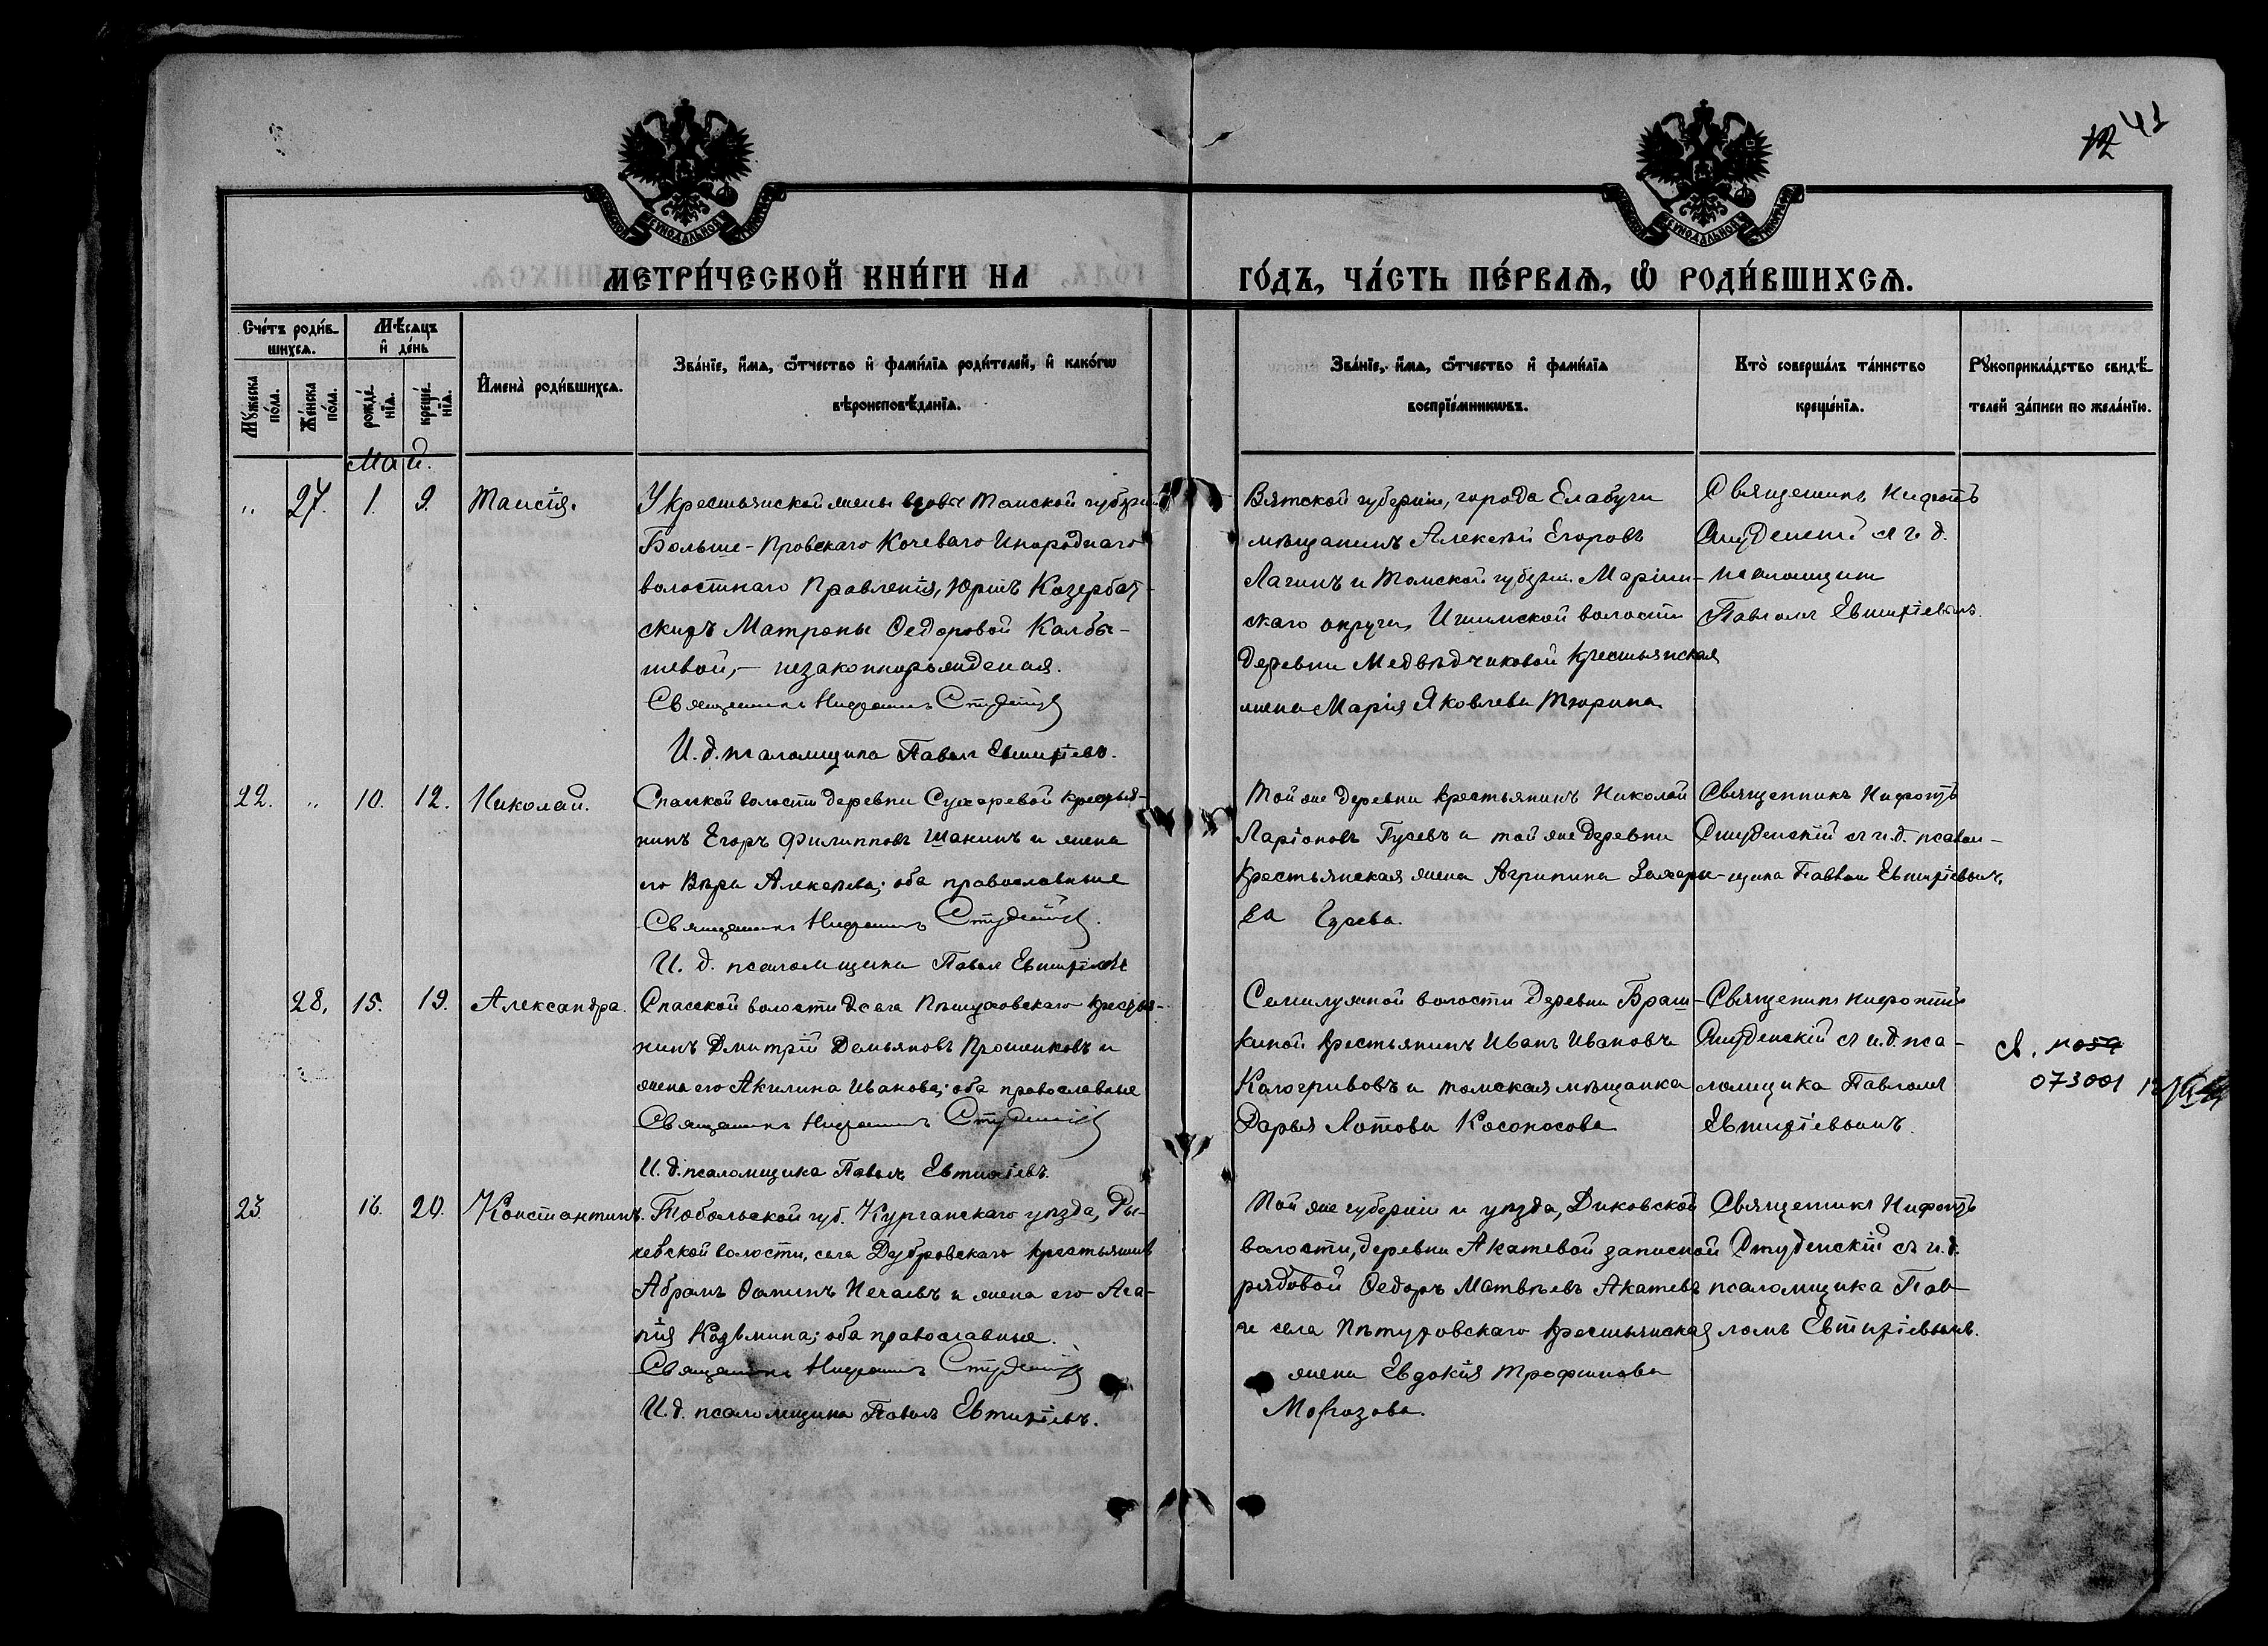 42 41
МЕТРИ́ЧЕСКОЙ КНИ́ГИ НА ГО́ДЪ, ЧА́СТЬ ПЕ́РВАѦ, Ѽ РОДИ́ВШИХСѦ.
Сче́тъ роди́в-
шихсѧ.
Мꙋ́жеска по́ла.
Же́нска по́ла.
Мѣ́сѧцъ и҆ де́нь
рожде́нїѧ.
креще́нїѧ.
И҆мена̀ роди́вшихсѧ.
Зва́нїе, и҆́мѧ, ѻ҆́тчество и҆ фамі́лїѧ роди́телей, и҆ како́гѡ
вѣроисповѣ́данїѧ.
Зва́нїе, и҆́мѧ, ѻ҆́тчество и҆ фамі́лїѧ
воспрїе́мникѡвъ.
Кто̀ соверша́лъ та́инство
креще́нїѧ.
Рꙋкоприкла́дство свидѣ́-
телей за́писи по жела́нїю.
Май.
„ 27. 1. 9. Таисія.
У крестьянской жены вдовы Томской губерніи
Больше-Провскаго Кочеваго Инороднаго
волостнаго Правленія, Юртъ
Матроны Ѳедоровой Калбы-
шевой,- незаконнорожденая.
Священникъ Нифонтъ Студенскій
И. д. псаломщика Павелъ Евтихіевъ.
Вятской губерніи, города Елабуги
мѣщанинъ Алексѣй Егоровъ
Лагинъ и Томской губерніи Маріин-
скаго округа, Ижимской волости
деревни Медвѣдчиковой крестьянская
жена Марія Яковлева Тюрина
Священникъ Нифонтъ
Студенскій съ и. д.
псаломщика
Павломъ Евтихіевымъ.
22. „ 10. 12. Николай.
Спасской волости деревни Сухаревой крестья-
нинъ Егоръ Филипповъ Шакинъ и жена
его Вѣра Алексѣева; оба православные
Священникъ Нифонтъ Студенскій.
И. д. псаломщика Павелъ Евтихіевъ
Той же деревни крестьянинъ Николай
Ларіоновъ Гусевъ и той же деревни
крестьянская жена Агрипина Захаро-
ва Гусева.
Священникъ Нифонтъ
Студенскій съ и. д. псалом-
щика Павломъ Евтихіевымъ.
28. 15. 19. Александра.
Спасской волости села крестья-
нинъ Дмитрій Демьяновъ Прошенковъ и
жена его Акилина Иванова; оба православные
Священникъ Нифонтъ Студенскій
И. д. псаломщика Павелъ Евтихіевъ.
Семилужной волости деревни Браж-
киной крестьянинъ Иванъ Ивановъ
Кологривовъ и томская мѣщанка
Дарья Лотова Косоносова
Священникъ Нифонтъ
Студенскій съ и. д. пса-
ломщика Павломъ
Евтихіевымъ.
073001
23. 16. 20. Константинъ.
Тобольской губ. Курганскаго уѣзда,
волости, села Дубровскаго крестьянинъ
Абрамъ Ѳоминъ Нечаевъ и жена его Ага-
пія Козьмина; оба православные.
Священникъ Нифонтъ Студенскій
И. д. псаломщика Павелъ Евтихіевъ.
Той же губерніи и уѣзда, Диковской
волости, деревни Акатевой записной
рядовой Ѳедоръ Матвѣевъ Акатевъ
и села Пѣтуховскаго крестьянская
жена Евдокія Трофимова
Морозова.
Священникъ Нифонтъ
Студенскій съ и. д.
псаломщика Пав-
ломъ Евтихіевымъ.